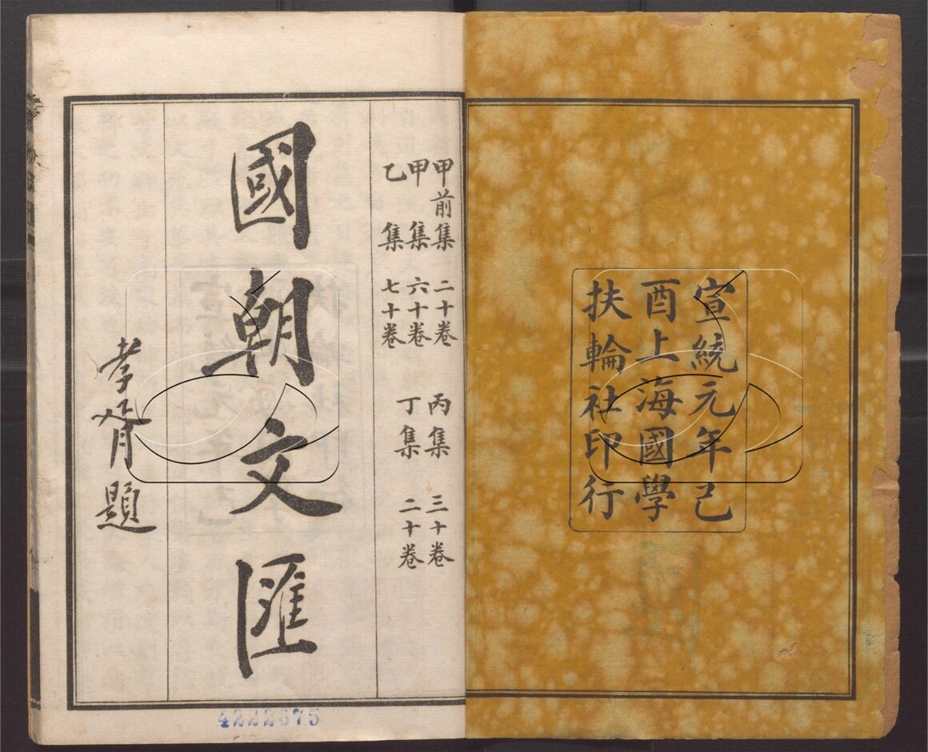 宣統元年己
酉上海國學
扶輪社印行
甲前集 二十卷 丙集 三十卷
甲集 六十卷 丁集 二十卷
乙集 七十卷
國朝文匯
孝胥題